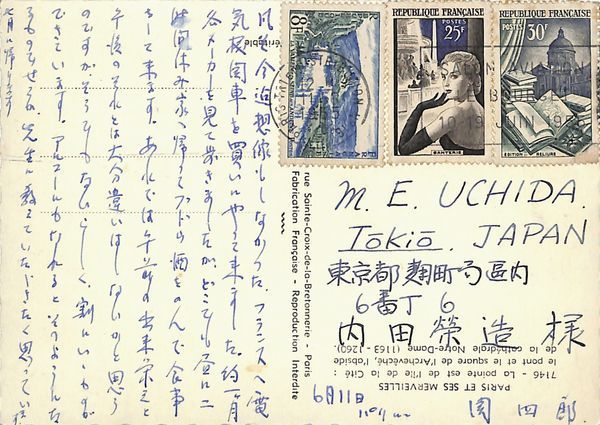 M. E. UCHIDA.
Tōkiō. JAPAN
東京都麹町局區内
6番丁 6
内田榮造様
6月11日
関四郎
RÉPUBLIQUE FRANÇAISE
POSTES
25F
GANTERIE
RÉPUBLIQUE FRANÇAISE
30F
EDITION RELIURE
8F
rue Sainte-Croix-de-la-Bretonnerie Paris
Fabrication Française - Reproduction Interdite
PARIS ET SES MERVEILLES
7146 - La pointe est de l'Ile de la Cité :
le pont et le square de l'Archevêché, l'abside
de la cathédrale Notre-Dame (1163-1260)
véritable
今迄想像もしなかった、フランスへ電
気機関車を買いにやって来ました。約一ヶ月
各メーカーを見て歩きましたが、どこでも昼は二
時間休み家へ帰ってブドー酒をのんで食事
をして来ます。あれでは午前の出来栄えと
午後のそれとは大分違いはしないかと思う
のですがそうでもないらしく、割にいいものが
できています。アルコールもなれるとそのようなも
先生に教えていただきたく思っています
七月に帰ります